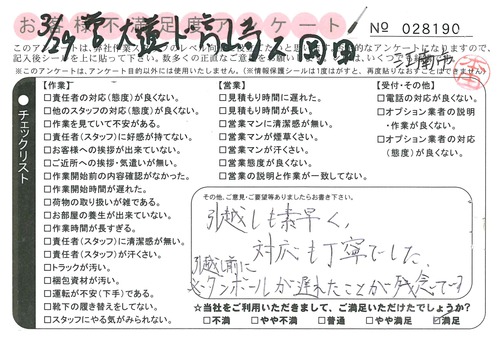 お客様不満足度アンケート
No 028190
このアンケートは、弊社作業スタッフのレベル向上
記入後シールを上に貼って下さい。
※このアンケートは、アンケート目的以外には使用いたしません。(※情報保護シールは1度がはすと、再度貼りなおすことはできません)
江南市
チェックリスト
【作業】
□責任者の対応(態度)が良くない。
□他のスタッフの対応(態度)が良くない。
□作業を見ていて不安がある。
□責任者(スタッフ)に好感が持てない。
□お客様への挨拶が出来ていない。
□ご近所への挨拶・気遣いが無い。
□作業開始前の内容確認がなかった。
□作業開始時間が遅れた。
□荷物の取り扱いが雑である。
□お部屋の養生が出来ていない。
□作業時間が長すぎる。
□責任者(スタッフ)に清潔感が無い。
□責任者(スタッフ)が汗くさい。
□トラックが汚い。
□梱包資材が汚い。
□運転が不安(下手)である。
□靴下の履き替えをしてない。
□スタッフにやる気がみられない。
【営業】
□見積もり時間に遅れた。
□見積もり時間が長い。
□営業マンに清潔感が無い。
□営業マンが煙草くさい。
□営業マンが汗くさい。
□営業の態度が良くない。
□営業の説明と作業が一致してない。
【受付・その他】
□電話の対応が良くない。
□オプション業者の説明・作業が良くない。
□オプション業者の対応(態度)が良くない。
その他、ご意見・ご要望等ありましたらお書き下さい。
引越しも素早く、
対応も丁寧でした。
引越し前に
ダンボールが遅れたことが残念です
☆当社をご利用いただきまして、ご満足いただけたでしょうか?
□不満 □やや不満 □普通 □やや満足 ☑満足